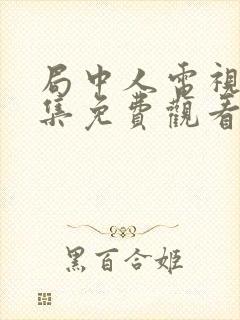 局中人電視
集免費觀看
黑百合姬